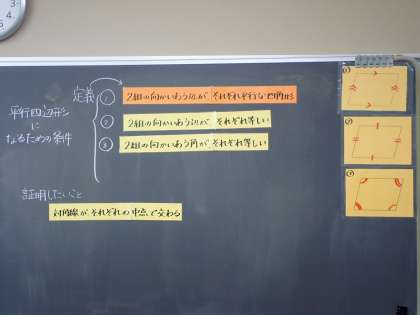 平行四辺形
に
なるための条件
定義 ① 2組の向かいあう辺が、それぞれ平行な四角形
② 2組の向かいあう辺が、それぞれ等しい
③ 2組の向かいあう角が、それぞれ等しい
証明したいこと
対角線がそれぞれの中点で交わる
①
②
③